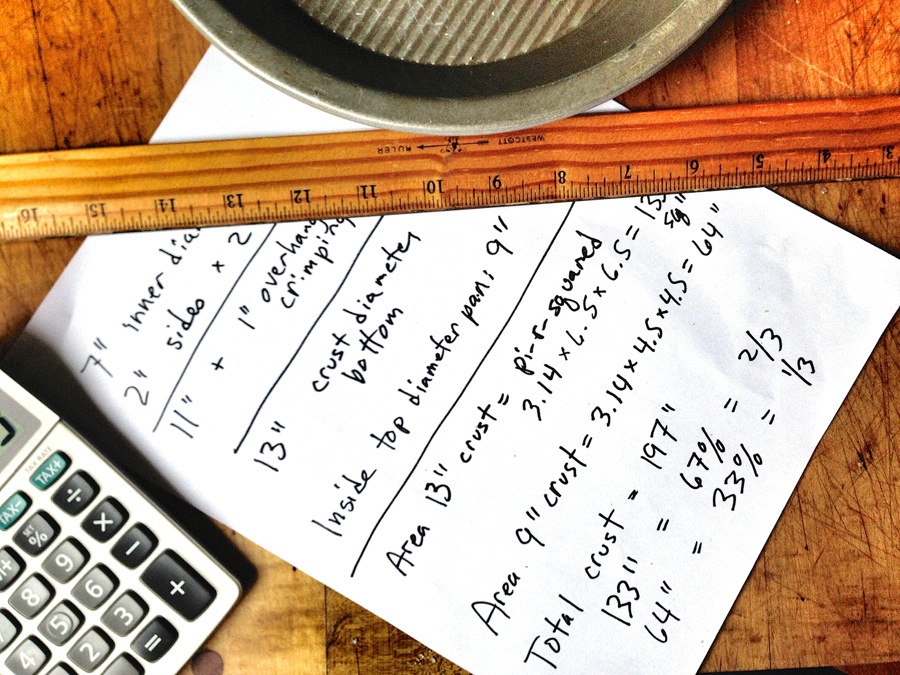 WESTCOTT
RULER
16 15 14 13 12 11 10 9 8 7 6 5 4 3
7" inner
2" sides x 2
11" + 1" overhang
crimping
13" crust diameter
bottom
Inside top diameter pan: 9"
Area 13" crust = pi-r-squared
3.14 x 6.5 x 6.5 =
sq"
Area 9" crust = 3.14 x 4.5 x 4.5 = 64"
Total crust = 197"
133" = 67% = 2/3
64" = 33% = 1/3
TAX RATE
TAX- TAX+
M+ SET % ÷
8 9 × −
4 5 6 +
2 3 =